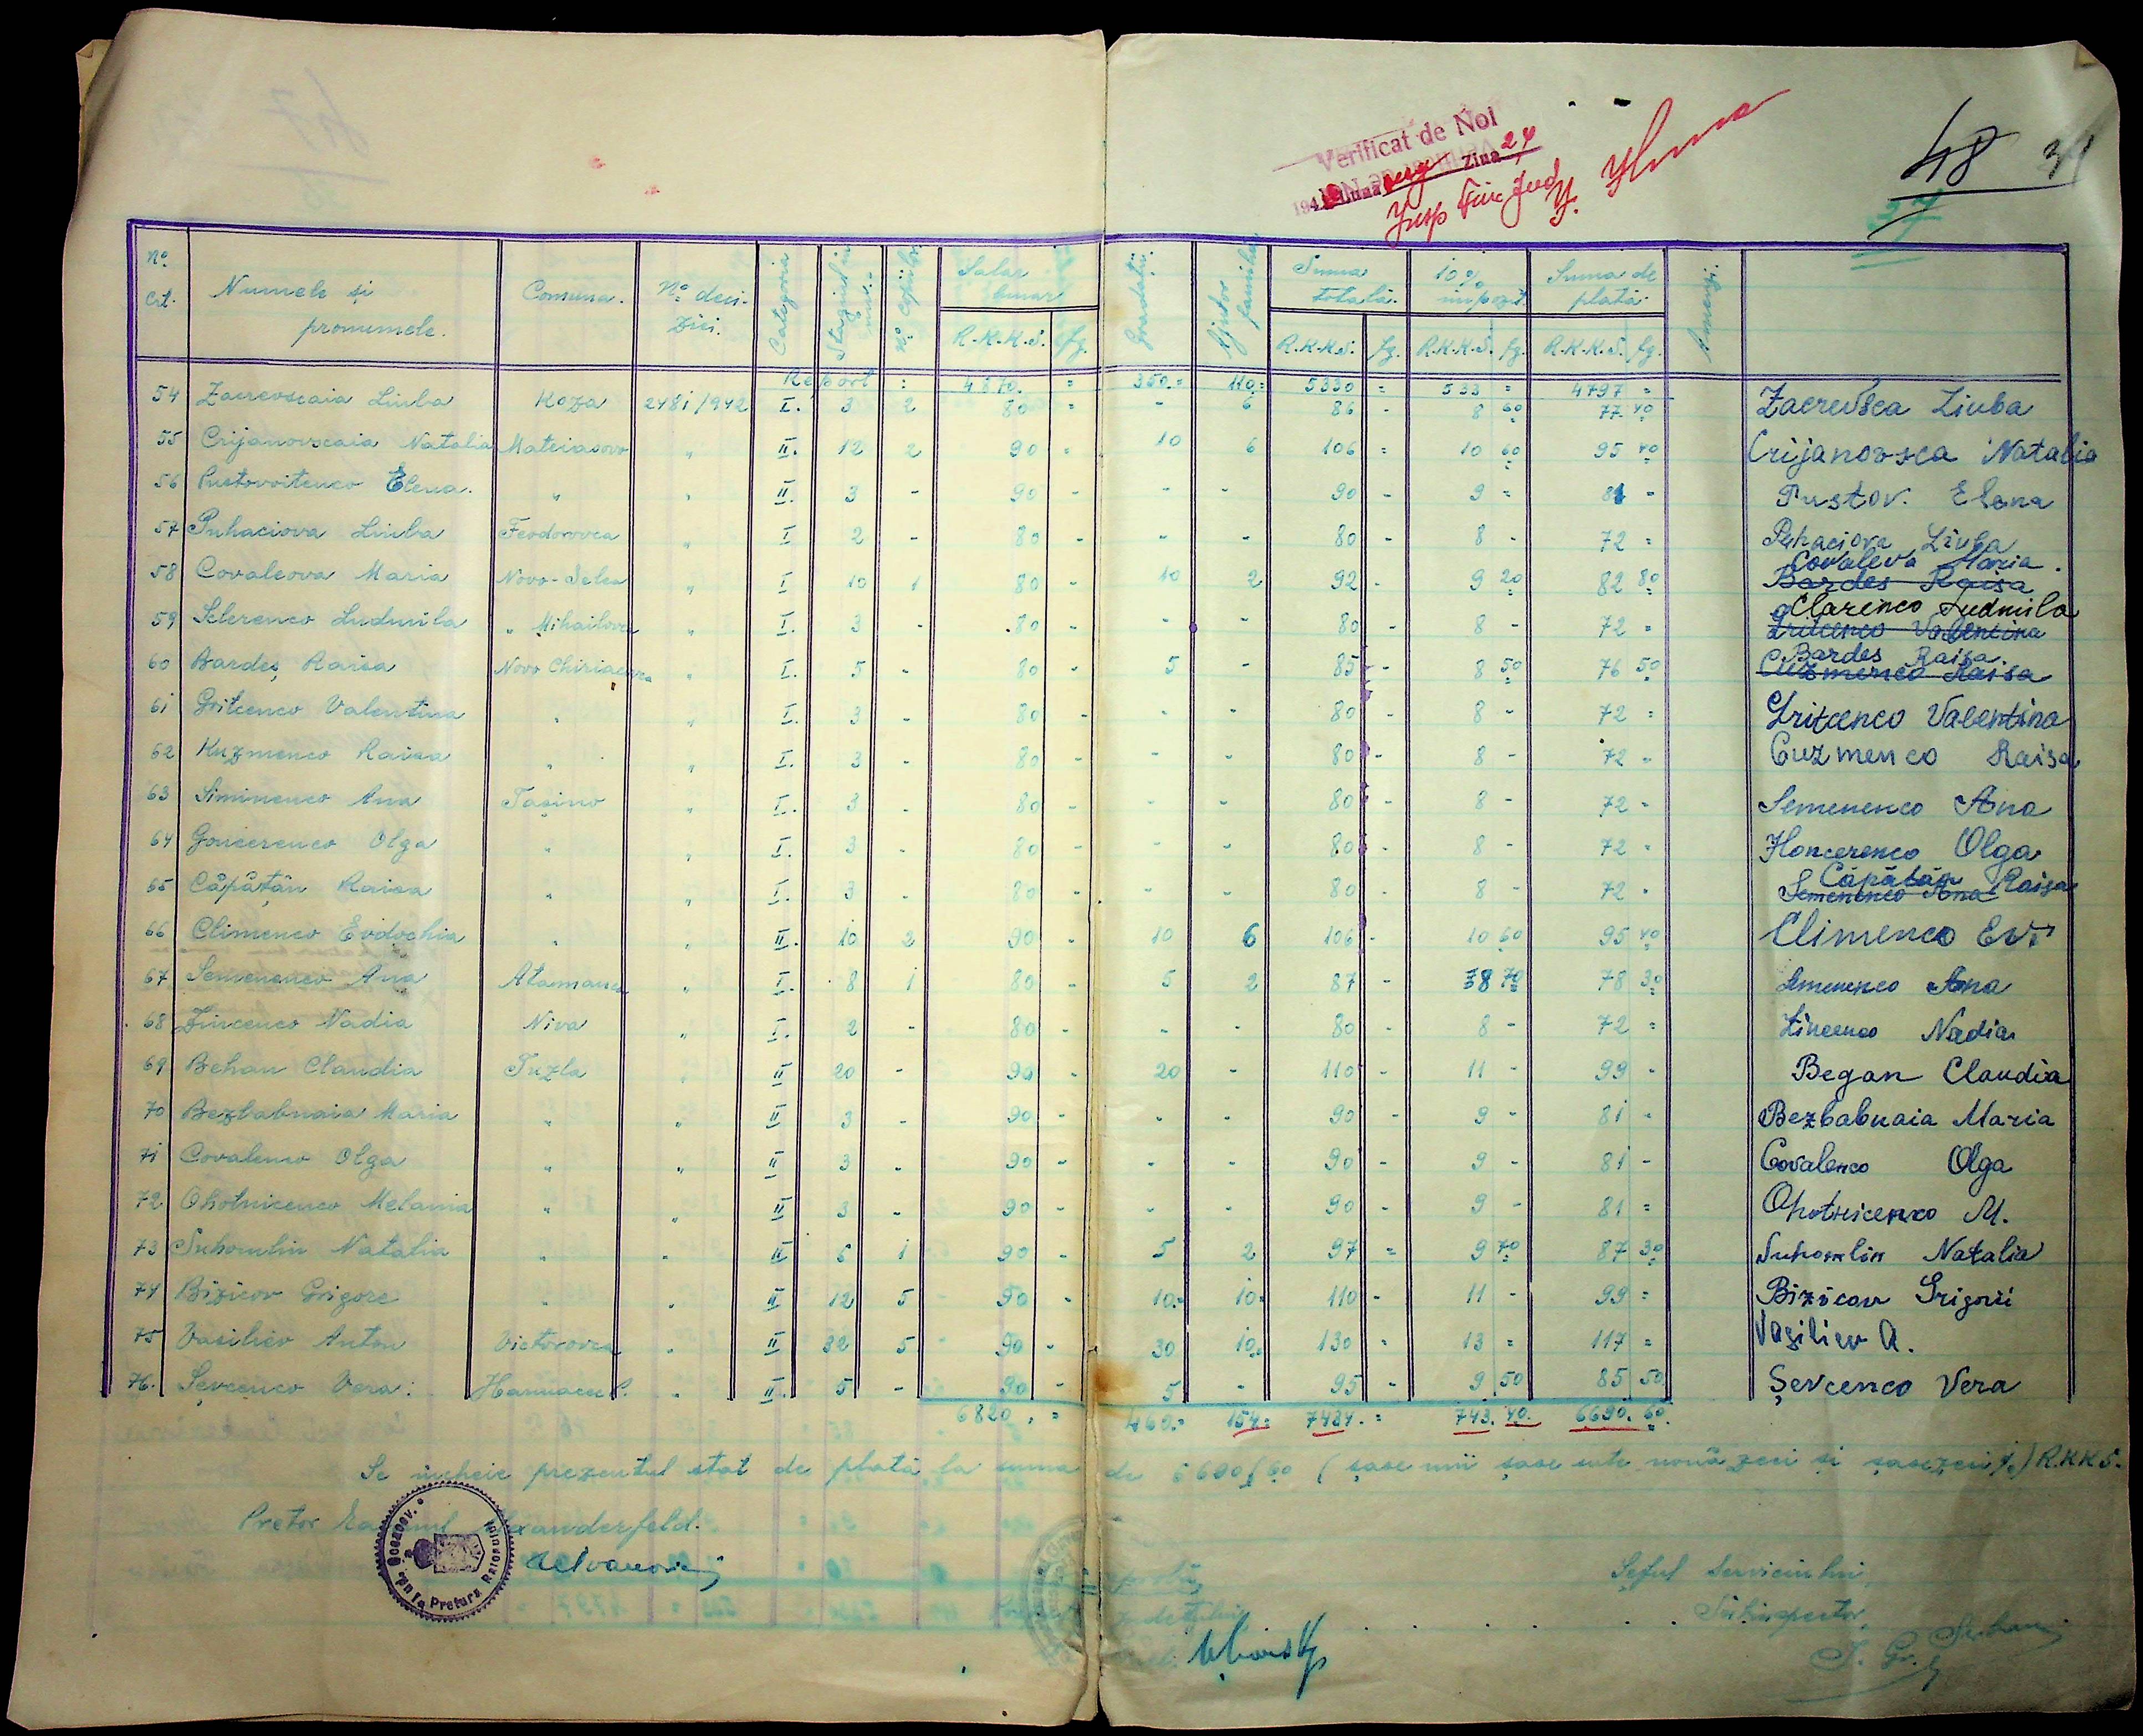 Verificat de Noi
194 Luna Ziua 24
48
27
No. crt. | Numele și pronumele. | Comuna. | No. deciziei. | Categoria | No. copiilor | Salar lunar R.K.K.S. fg. | Gradații | Ajutor familiar | Suma totală. R.K.K.S. fg. | 10% impozit R.K.K.S. fg. | Suma de plată. R.K.K.S. fg. | Amenzi.
Report : 4870. = 350.= 110.= 5330 = 533 = 4797 =
54 Zacrevscaia Liuba Koza 2481/942 I. 3 2 80 = - 6 86 - 8 60 77 40 Zacrevsca Liuba
55 Crijanovscaia Natalia Mateiasovo " II. 12 2 90 = 10 6 106 = 10 60 95 40 Crijanovsca Natalia
56 Pustovoitenco Elena. " " II. 3 - 90 - - - 90 - 9 = 81 = Pustov. Elena
57 Puhaciova Liuba Feodorovca " I 2 - 80 - - - 80 - 8 - 72 = Puhaciova Liuba
58 Covaleova Maria Novo-Selca " I 10 1 80 - 10 2 92 - 9 20 82 80 Covaleva Maria.
Bardes Raisa
59 Sclerenco Ludmila " Mihailovca " I. 3 - 80 - - - 80 - 8 - 72 = Clarenco Ludmila
Gritcenco Valentina
60 Bardeș Raisa Novo Chiriacovca " I. 5 - 80 - 5 - 85 - 8 50 76 50 Bardes Raisa
Cuzmenco Raisa
61 Gritcenco Valentina " " I. 3 - 80 - - - 80 - 8 - 72 = Gritcenco Valentina
62 Kuzmenco Raisa " " I. 3 - 80 - - - 80 - 8 - 72 - Cuzmenco Raisa
63 Siminenco Ana Tașino " I. 3 - 80 - - - 80 - 8 - 72 - Semenenco Ana
64 Goncerenco Olga " " I. 3 - 80 - - - 80 - 8 - 72 - Honcerenco Olga
65 Căpățân Raisa " " I. 3 - 80 - - - 80 - 8 - 72 - Căpățân Raisa
Semenenco Ana
66 Climenco Evdochia " " II. 10 2 90 - 10 6 106 - 10 60 95 40 Climenco Ev
67 Semenenco Ana Atamanca " I. 8 1 80 - 5 2 87 - 8 70 78 30 Semenenco Ana
68 Zincenco Nadia Niva " I. 2 - 80 - - - 80 - 8 - 72 = Zincenco Nadia
69 Behan Claudia Tuzla " II 20 - 90 - 20 - 110 - 11 - 99 - Began Claudia
70 Bezbabnaia Maria " " II 3 - 90 - - - 90 - 9 - 81 - Bezbabnaia Maria
71 Covalenco Olga " " II 3 - 90 - - - 90 - 9 - 81 - Covalenco Olga
72 Ohotnicenco Melania " " II 3 - 90 - - - 90 - 9 - 81 = Ohotnicenco M.
73 Suhomlin Natalia " " II 6 1 90 - 5 2 97 = 9 70 87 30 Suhomlin Natalia
74 Bizicov Grigore " " II 12 5 90 - 10.= 10= 110 - 11 - 99 = Bizicov Grigorii
75 Vasiliev Anton Victorovca " II 32 5 90 - 30 10= 130 = 13 = 117 = Vasiliev A.
76. Șevcenco Vera: " II. 5 - 90 - 5 - 95 - 9 50 85 50 Șevcenco Vera
6820. = 460.= 154= 7434. = 743. 40. 6690. 60.
Se încheie prezentul stat de plată la suma de 6690/60 (șase mii șase sute nouă zeci și șasezeci f.) R.K.K.S.
Pretor Raionul
Preturа Raionului
Șeful Serviciului
Subinspector,